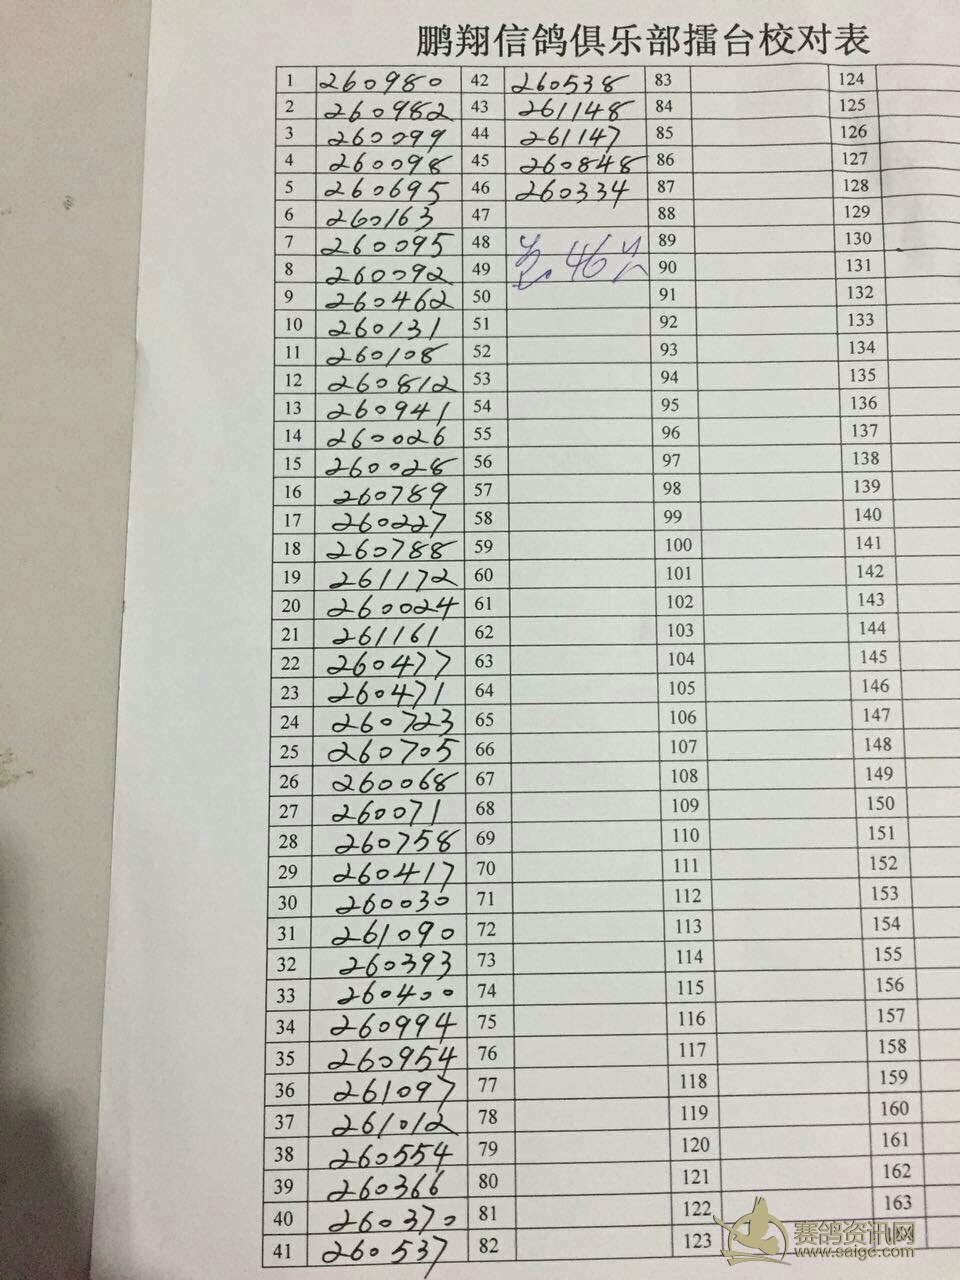 鹏翔信鸽俱乐部擂台校对表
1 260980 42 260538 83 124
2 260982 43 261148 84 125
3 260099 44 261147 85 126
4 260098 45 260848 86 127
5 260695 46 260334 87 128
6 260163 47 88 129
7 260095 48 89 130
8 260092 49 共46羽 90 131
9 260462 50 91 132
10 260131 51 92 133
11 260108 52 93 134
12 260812 53 94 135
13 260941 54 95 136
14 260026 55 96 137
15 260028 56 97 138
16 260789 57 98 139
17 260227 58 99 140
18 260788 59 100 141
19 261172 60 101 142
20 260024 61 102 143
21 261161 62 103 144
22 260477 63 104 145
23 260471 64 105 146
24 260723 65 106 147
25 260705 66 107 148
26 260068 67 108 149
27 260071 68 109 150
28 260758 69 110 151
29 260417 70 111 152
30 260030 71 112 153
31 261090 72 113 154
32 260393 73 114 155
33 260400 74 115 156
34 260994 75 116 157
35 260954 76 117 158
36 261097 77 118 159
37 261012 78 119 160
38 260554 79 120 161
39 260366 80 121 162
40 260370 81 122 163
41 260537 82 123
赛鸽资讯网
www.saige.com